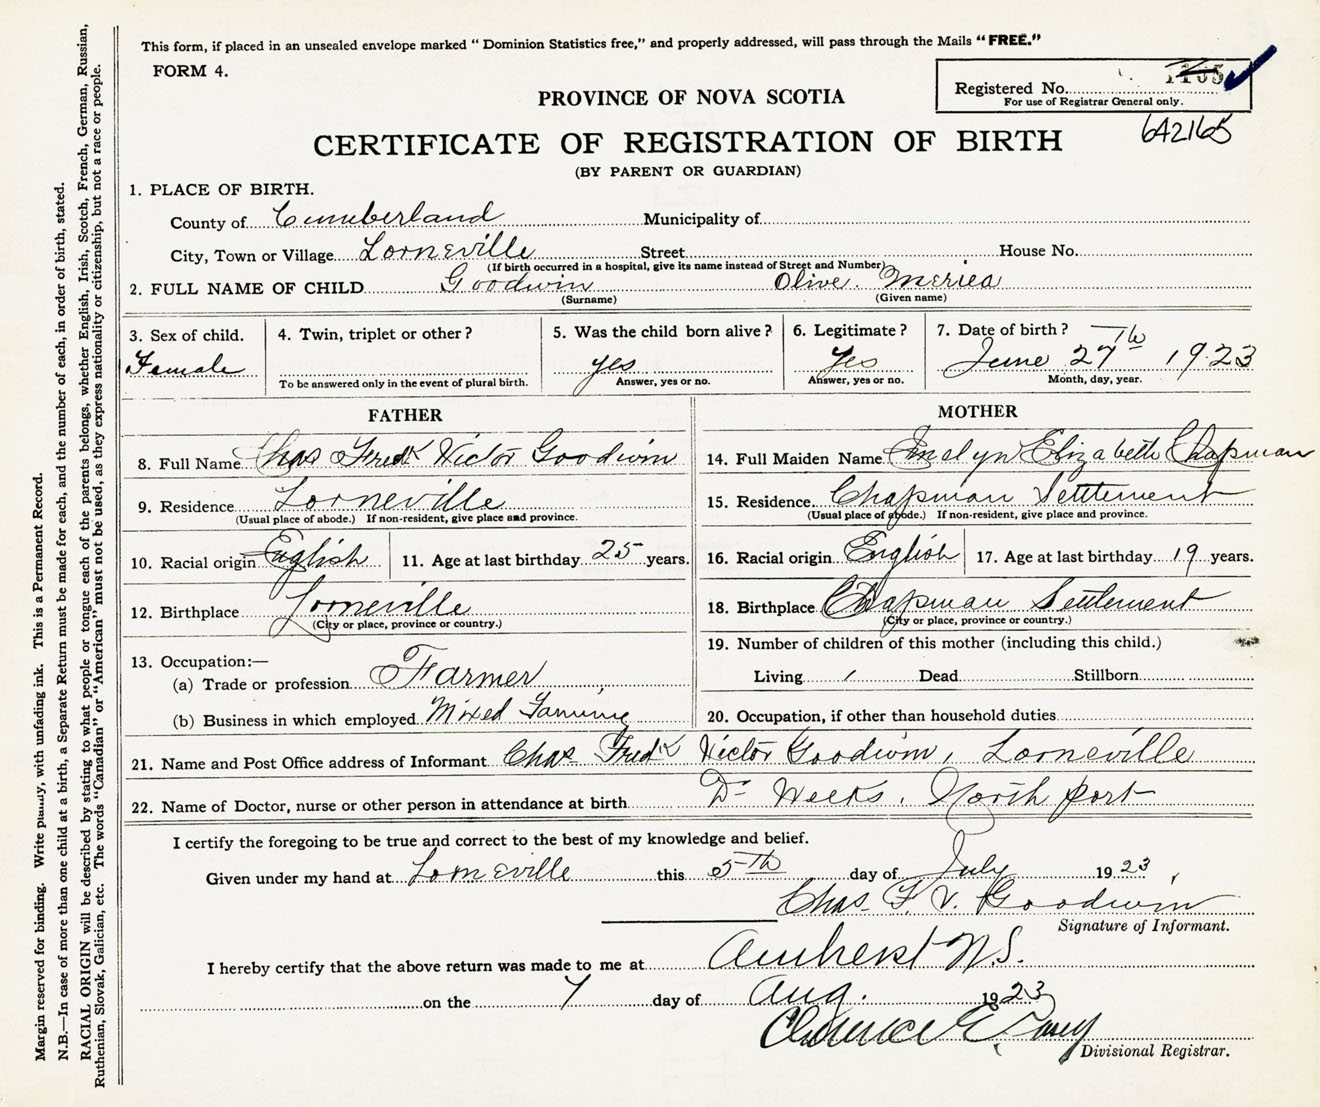 This form, if placed in an unsealed envelope marked " Dominion Statistics free," and properly addressed, will pass through the Mails "FREE."
FORM 4.
Registered No.
For use of Registrar General only.
642165
PROVINCE OF NOVA SCOTIA
CERTIFICATE OF REGISTRATION OF BIRTH
(BY PARENT OR GUARDIAN)
1. PLACE OF BIRTH.
County of Cumberland Municipality of
City, Town or Village Lorneville Street House No.
(If birth occurred in a hospital, give its name instead of Street and Number)
2. FULL NAME OF CHILD Goodwin Olive. Meriea
(Surname) (Given name)
3. Sex of child. 4. Twin, triplet or other? 5. Was the child born alive? 6. Legitimate? 7. Date of birth?
Female yes Yes June 27th 1923
To be answered only in the event of plural birth. Answer, yes or no. Answer, yes or no. Month, day, year.
FATHER MOTHER
8. Full Name Chas Fredk Victor Goodwin 14. Full Maiden Name Emelyn Elizabeth Chapman
9. Residence Lorneville 15. Residence Chapman Settlement
(Usual place of abode.) If non-resident, give place and province. (Usual place of abode.) If non-resident, give place and province.
10. Racial origin English 11. Age at last birthday 25 years. 16. Racial origin English 17. Age at last birthday 19 years.
12. Birthplace Lorneville 18. Birthplace Chapman Settlement
(City or place, province or country.) (City or place, province or country.)
13. Occupation:— 19. Number of children of this mother (including this child.)
(a) Trade or profession Farmer Living 1 Dead Stillborn
(b) Business in which employed Mixed Farming 20. Occupation, if other than household duties
21. Name and Post Office address of Informant Chas Fredk Victor Goodwin, Lorneville
22. Name of Doctor, nurse or other person in attendance at birth Dr Weeks, North port
I certify the foregoing to be true and correct to the best of my knowledge and belief.
Given under my hand at Lorneville this 5th day of July 1923,
Chas. F. V. Goodwin
Signature of Informant.
I hereby certify that the above return was made to me at Amherst N.S.
on the 7 day of Aug. 1923
Clarence E
Divisional Registrar.
Margin reserved for binding. Write plainly, with unfading ink. This is a Permanent Record.
N.B.—In case of more than one child at a birth, a Separate Return must be made for each, and the number of each, in order of birth, stated.
RACIAL ORIGIN will be described by stating to what people or tongue each of the parents belongs, whether English, Irish, Scotch, French, German, Russian,
Ruthenian, Slovak, Galician, etc. The words "Canadian" or "American" must not be used, as they express nationality or citizenship, but not a race or people.